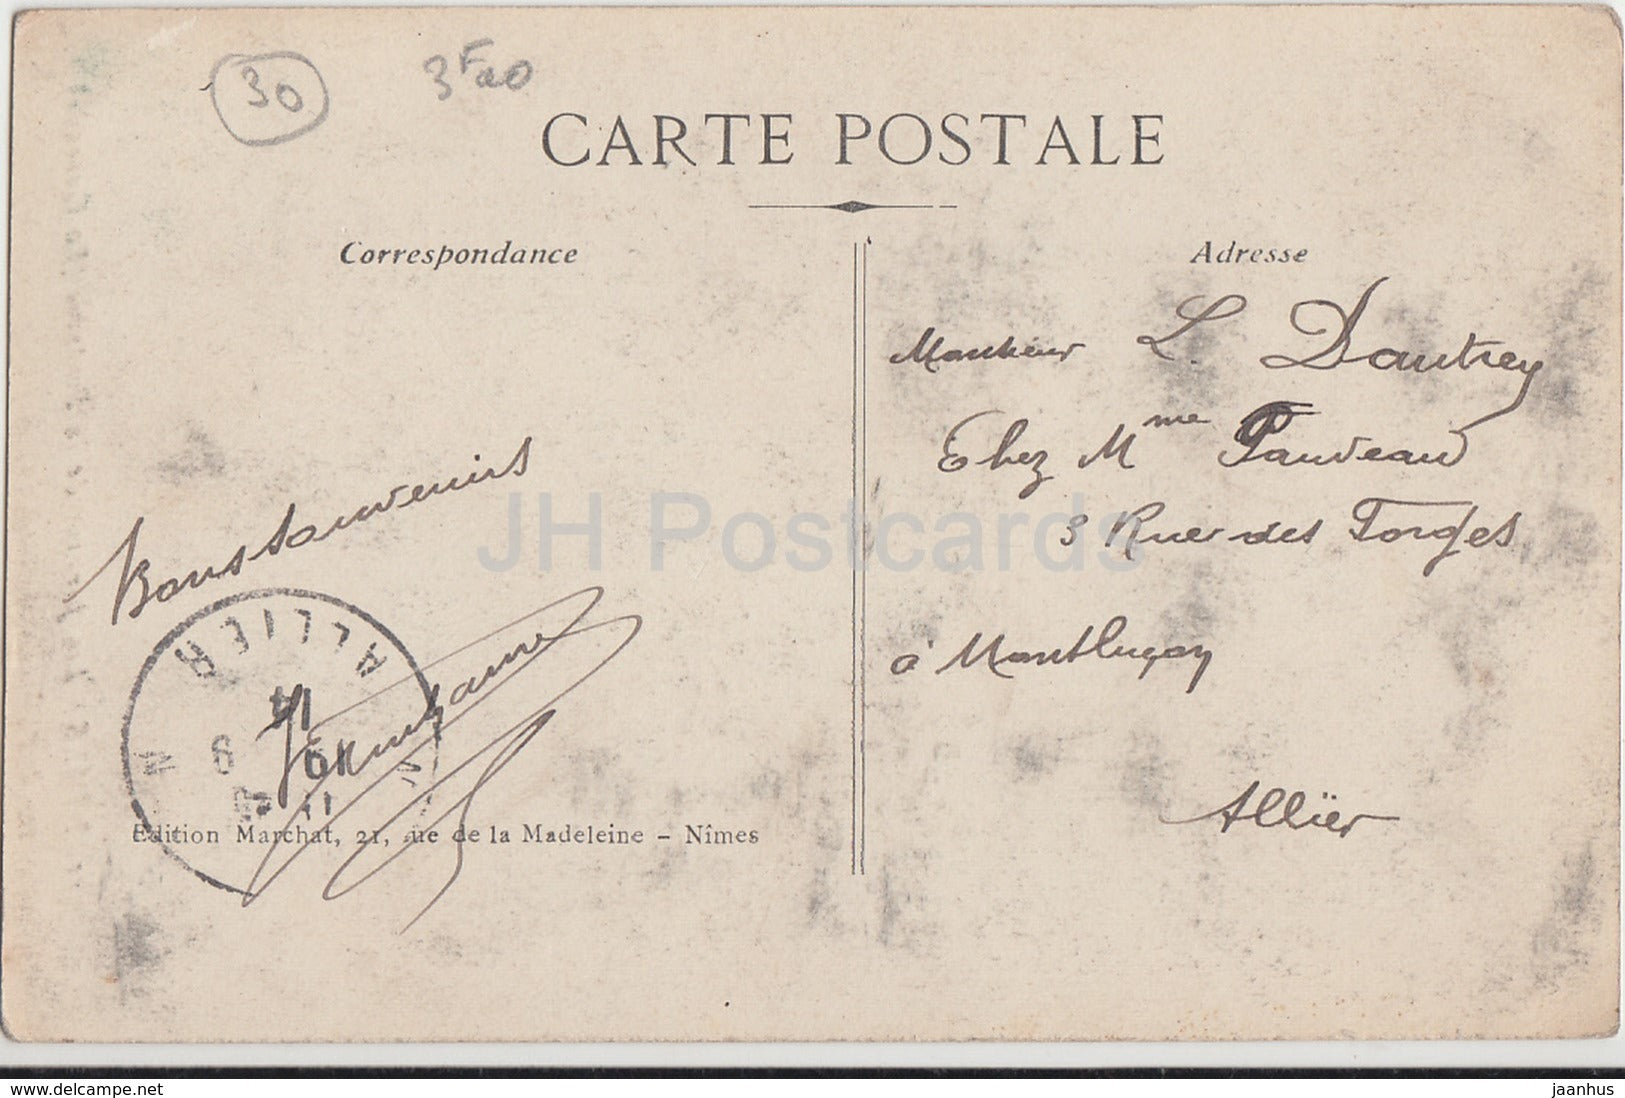 30
3F20
CARTE POSTALE
Correspondance
Adresse
Monsieur L. Dautrey
Chez Mme Pauveau
3 Rue des Forges
à Montluçon
Allier
Bons souvenirs
ALLIER
14
9
11
Edition Marchat, 21, rue de la Madeleine – Nîmes
JH Postcards
www.delcampe.net
jaanhus